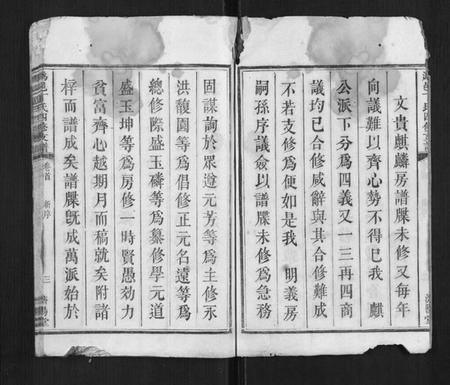 文貴麒麟房譜牒未修又每年
向議難以齊心勢不得已我 麒
公派下分為四義又一三再四商
議均已合修咸辭與其合修難成
不若支修為便如是我 明義房
嗣孫序議僉以譜牒未修為急務
固謀詢於眾遵元芳等為主修永
洪馥園等為倡修正元名遠等為
總修際盛玉磷等為纂修學元道
盛玉坤等為房修一時賢愚効力
貧富齊心越期月而稿就矣附諸
梓而譜成矣譜既成萬派始於
氏四修支譜 卷首 新序 三